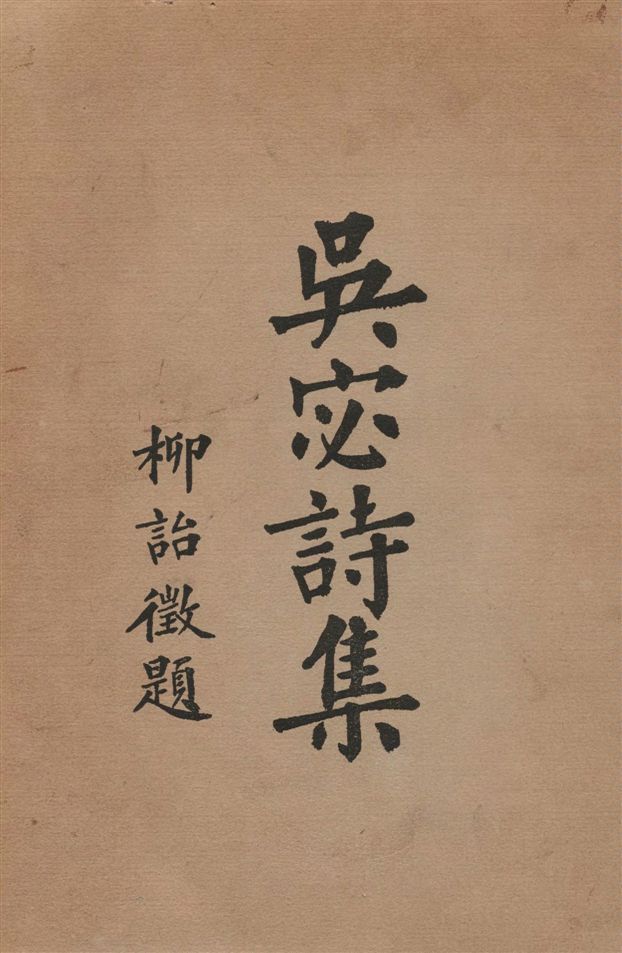 吳宓詩集
柳詒徵題